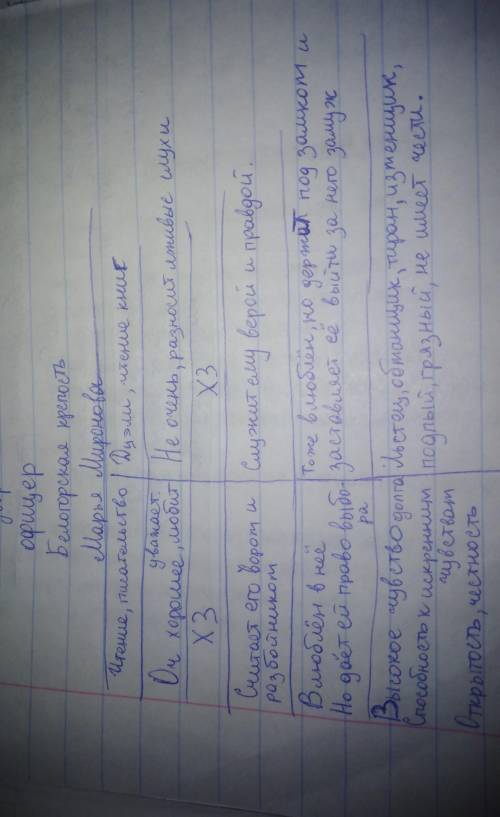 офицер
Белогорская крепость
Марья Миронова
Чтение, писательство
Дуэли, чтение книг
уважает,
Оч хорошее, любит
Не очень, разносит лживые слухи
ХЗ
ХЗ
Считает его вором и
разбойником
Служит ему верой и правдой.
Влюблён в неё
Но даёт ей право выбо-
ра
Тоже влюблён, но держит под замком и
заставляет её выйти за него замуж
Высокое чувство долга
Способность к искренним
чувствам
Открытость, честность
Льстец, обманщик, тиран, изменщик,
подлый, грязный, не имеет чести.